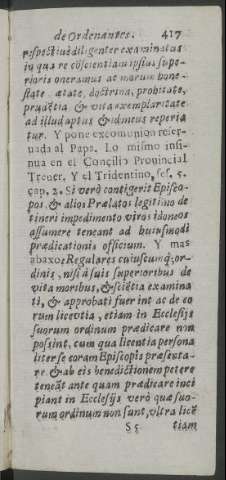 de Ordenantes. 417
respectiuè diligenter examinatus
in qua re cõscientiam ipsius supe-
rioris oneramus ac morum hone-
state ætate, doctrina, probitate,
prudẽtia & vita exemplaritate
ad illud aptus & idoneus reperia
tur. Y pone excomunion reser-
uada al Papa. Lo mismo insi-
nua en el Concilio Prouincial
Treuer. Y el Tridentino, ses. 5.
cap. 2. Si verò contigerit Episco-
pos, & alios Prælatos legitimo de
tineri impedimento viros idoneos
assumere teneant ad huiusmodi
prædicationis officium. Y mas
abaxo: Regulares cuiuscunq; or-
dinis, nisi à suis superioribus de
vita moribus, & sciẽtia examina
ti, & approbati fuerint ac de eo
rum licẽtia, etiam in Ecclesijs
suorum ordinum prædicare non
possint, cum qua licentia persona
liter se coram Episcopis præsenta-
re, & ab eis benedictionem petere
teneãt ante quam prædicare inci
piant in Ecclesijs verò quæ suo-
rum ordinum non sunt, vltra licẽ
S 5 tiam